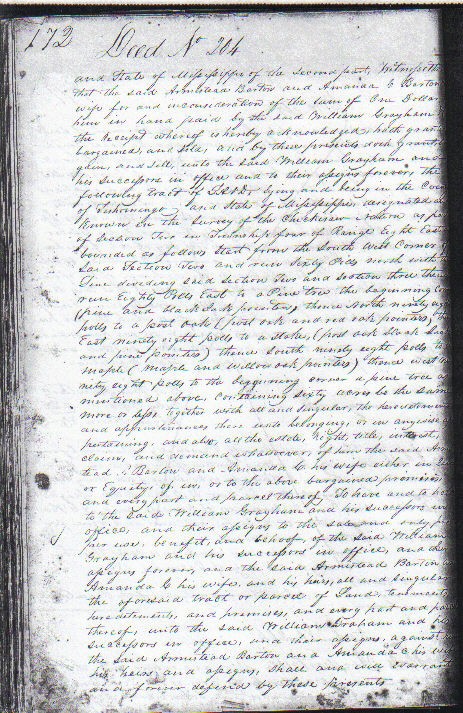 172 Deed No 204
and State of Mississippi of the second part, Witnesseth
that the said Armistead Barton and Amanda C Barton
wife for and inconsideration of the sum of One Dollar
him in hand paid by the said William Grayham
the receipt whereof is hereby acknowledged, hath gran
bargained, and sold, and by these presents doth Grant
and sell, unto the said William Grayham and
his successors in office and to their assigns forever the
following tract of lying and being in the Coun
of Tishomingo, and State of Mississippi, designated a
known in the survey of the Chickisaw Nation as pa
of Section Two in Township four of Range Eight East
bounded as follows Start from the South West Corner
Said Section Two and run Sixty Polls north with t
line dividing said Section Two and section three then
run Eighty Polls East to a Pine tree the beginning co
(pine and black oak pointers) thence North ninety eig
polls to a post oak (post oak and red oak pointers) th
East ninety eight polls to a stake, (post oak black Jack
and pine pointers) thence South ninety eight polls to
maple (maple and willow oak pointers) thence west
ninety eight polls to the beginning corner a pine tree as
mentioned above, Containing sixty acres be the same
more or less together with all and singular, the hereditaments
and appurtenances there unto belonging, or in anywise
pertaining. and also, all the estate, Right, title, interest,
claim, and demand whatsoever, of him the said Arm
tead Barton and Amanda C his wife either in La
or Equity of, in, or to the above bargained premises
and every part and parcel thereof, To have and to ho
to the Said William Grayham and his successors in
office, and their assigns to the sole and only pro
per use, benefit, and behoof, of the said William
Grayham and his successors in office, and the
assigns forever, and the said Armistead Barton a
Amanda C his wife, and his heirs, all and singular
the aforesaid tract or parcel of Land, tenements
hereditements, and premises, and every part and pa
thereof, unto the said William Graham and his
successors in office, and their assigns, against
the said Armistead Barton and Amanda C his wi
his heirs and assigns, Shall and will Warran
and forever defend by these presents